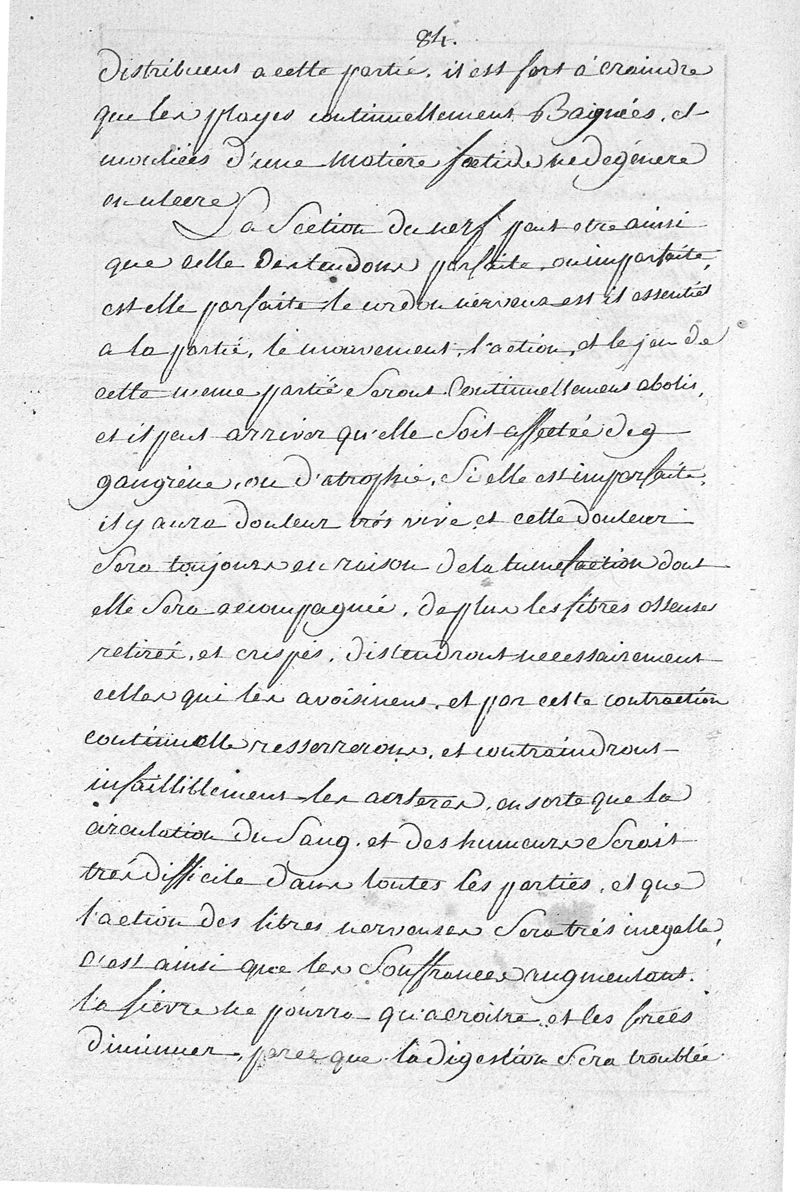 84.
distribuent a cette partié. il est fort á craindre
que les playes continuellement Baignées, et
mouliées d'une matiere foetide ne degénere
en ulcere
La Section du nerf peut etre ainsi
que celle des tendons parfaite, ou imparfaite,
est elle parfaite le cordon nerveux est il essentiel
a la partié, le mouvement, l'action, et le jeu de
cette meme partié Seront Continuellement abolis,
et il peut arriver qu'elle Soit affectée de g
gangrène, ou d'atrophié, Si elle est imparfaite,
il y aura douleur trés vive, et cette douleur
Sera toujours en raison de la tumefaction dont
elle Sera accompagnée, de plus les fibres osseuses
retireé, et crispés, distendront necessairement
celles qui les avoisinent, et par cette contraction
continuelle resserreront, et contraindront
infaillillement les arteres, en sorte que la
circulation du Sang, et des humeurs Seroit
trés difficile dans toutes les parties, et que
l'action des fibres nerveuses Sera trés inegalle,
c'est ainsi que les Souffrances augmentant.
la fievre ne pourra qu'acroitre et les forces
diminuer, parce que la digestion Sera troublée